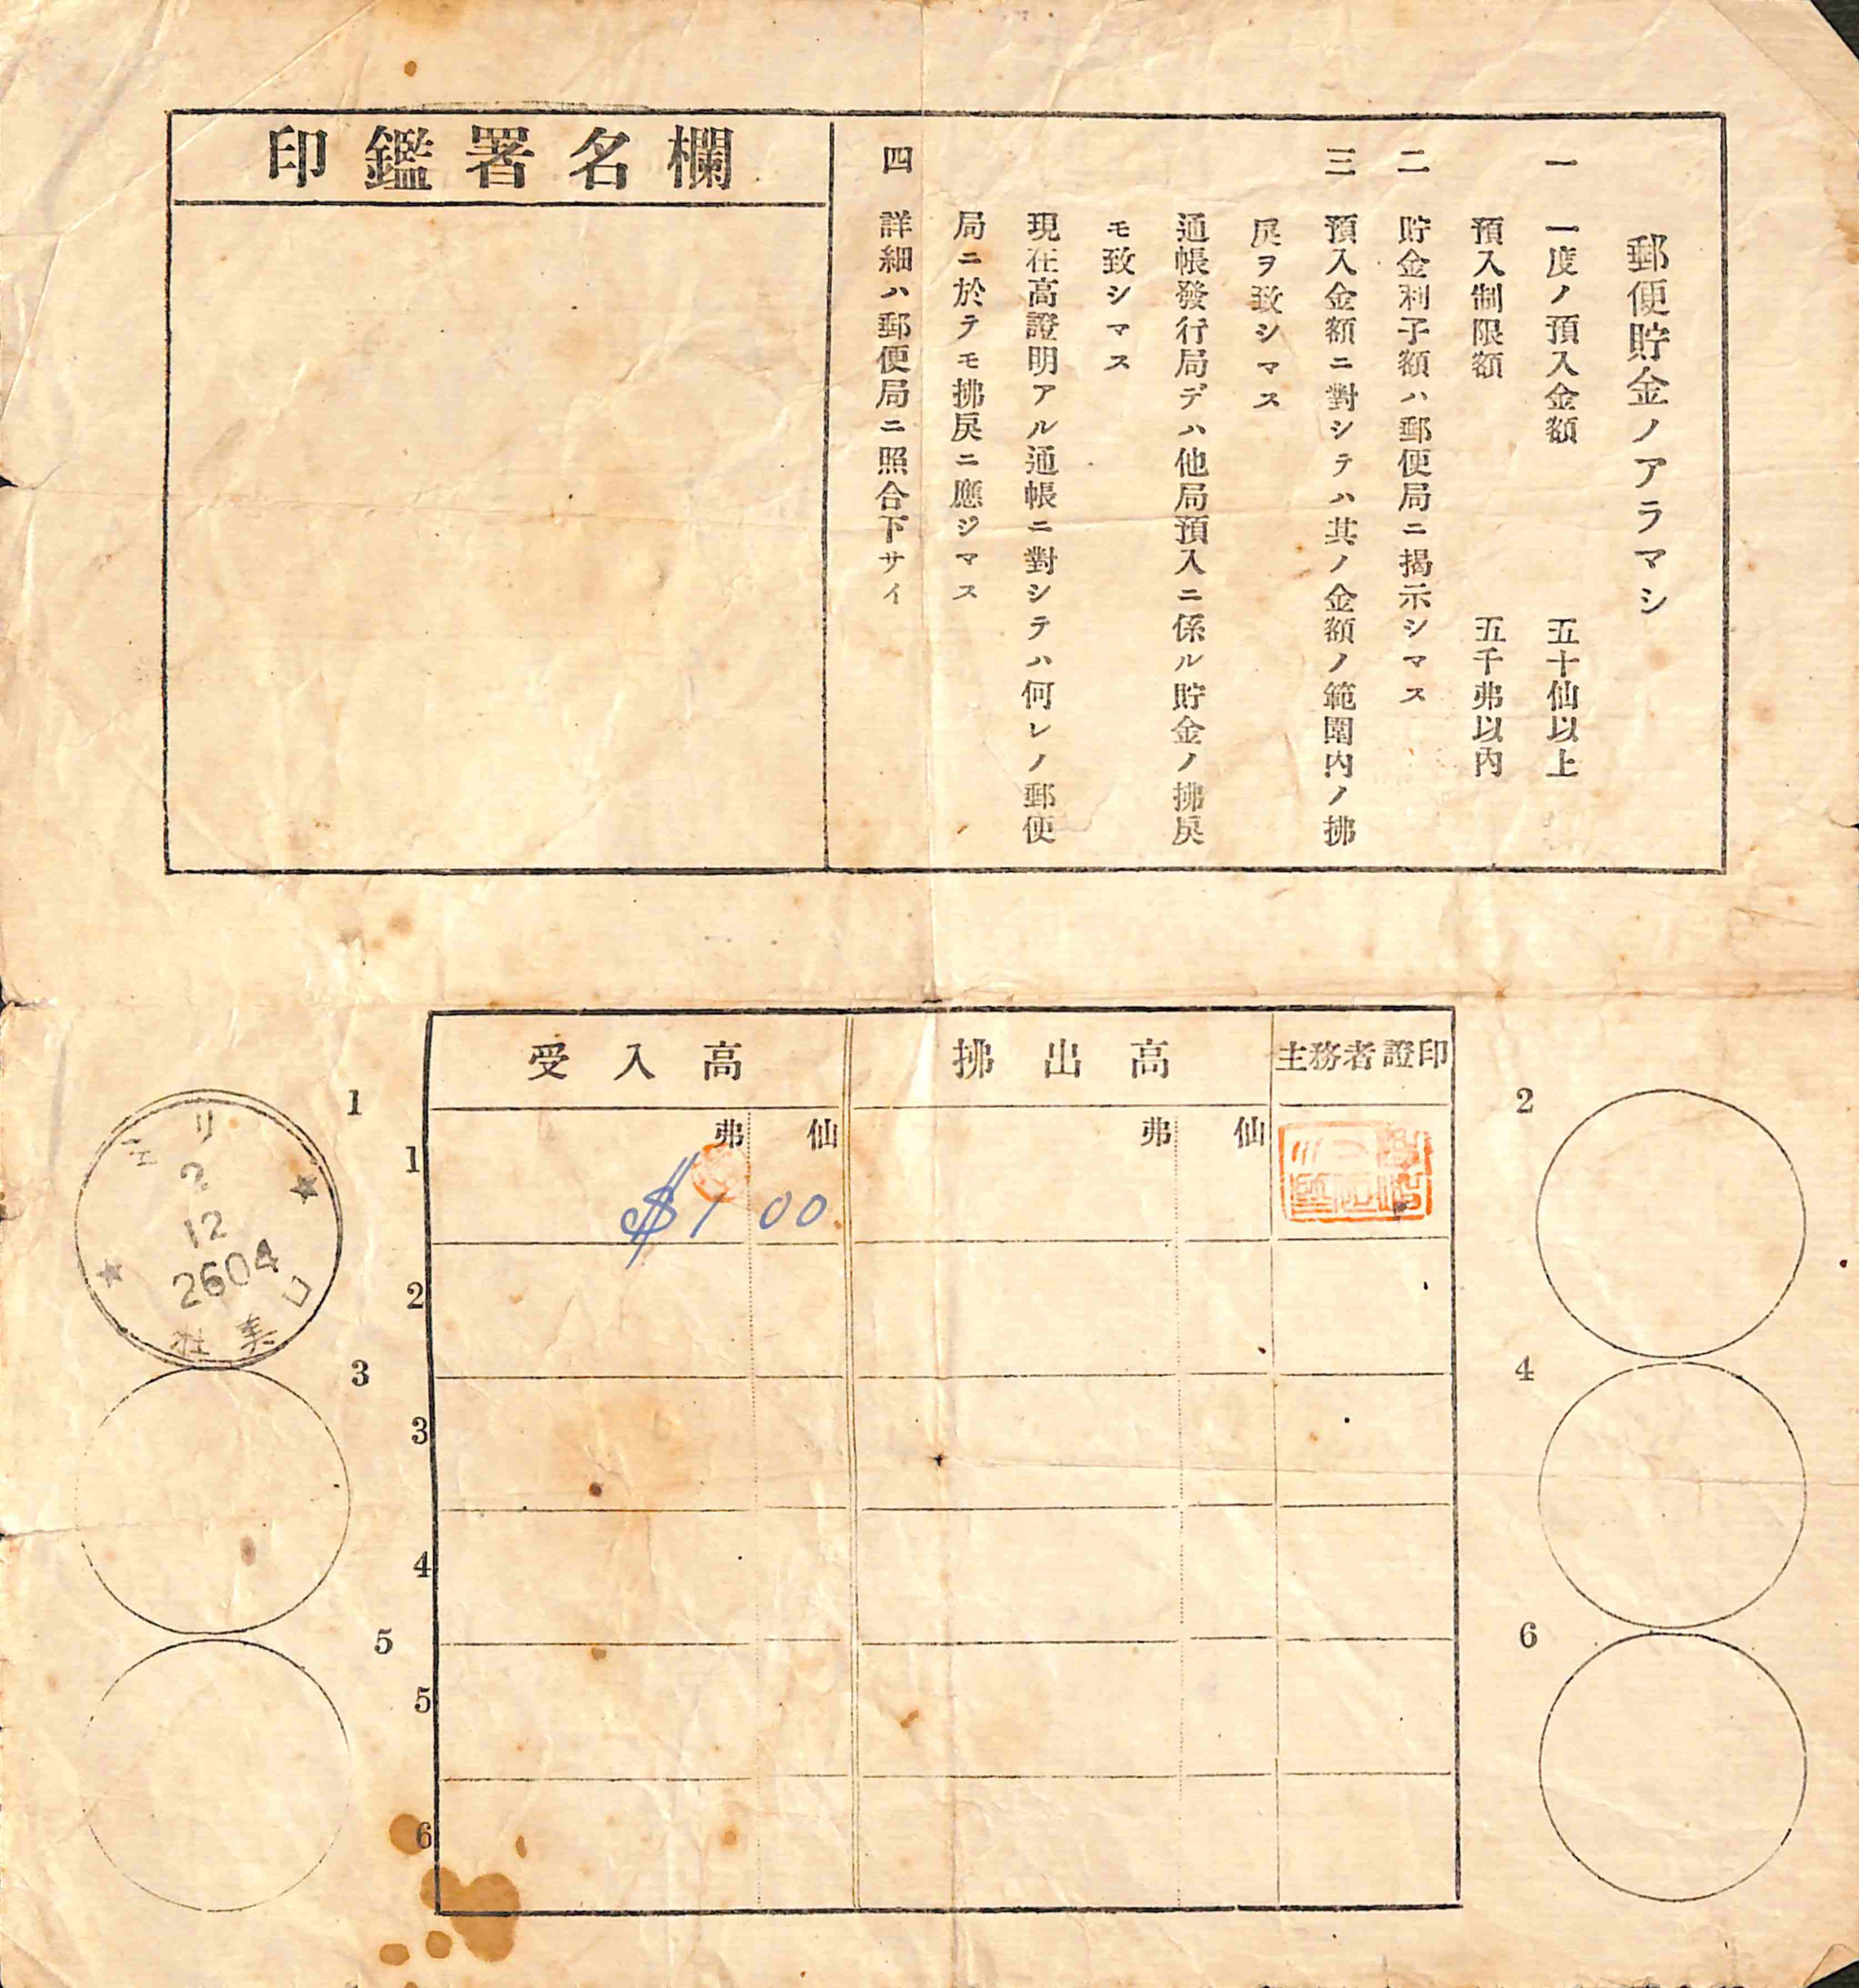 郵便貯金ノアラマシ
一 一度ノ預入金額 五十仙以上
預入制限額 五千弗以內
二 貯金利子額ハ郵便局ニ揭示シマス
三 預入金額ニ對シテハ其ノ金額ノ範圍內ノ拂
戾ヲ致シマス
通帳發行局デハ他局預入ニ係ル貯金ノ拂戾
モ致シマス
現在高證明アル通帳ニ對シテハ何レノ郵便
局ニ於テモ拂戾ニ應ジマス
四 詳細ハ郵便局ニ照合下サイ
印鑑署名欄
受入高 拂出高 主務者證印
弗 仙 弗 仙
$1 00
1
2
3
4
5
6
1
2
3
4
5
6
ミリ
2
12
2604